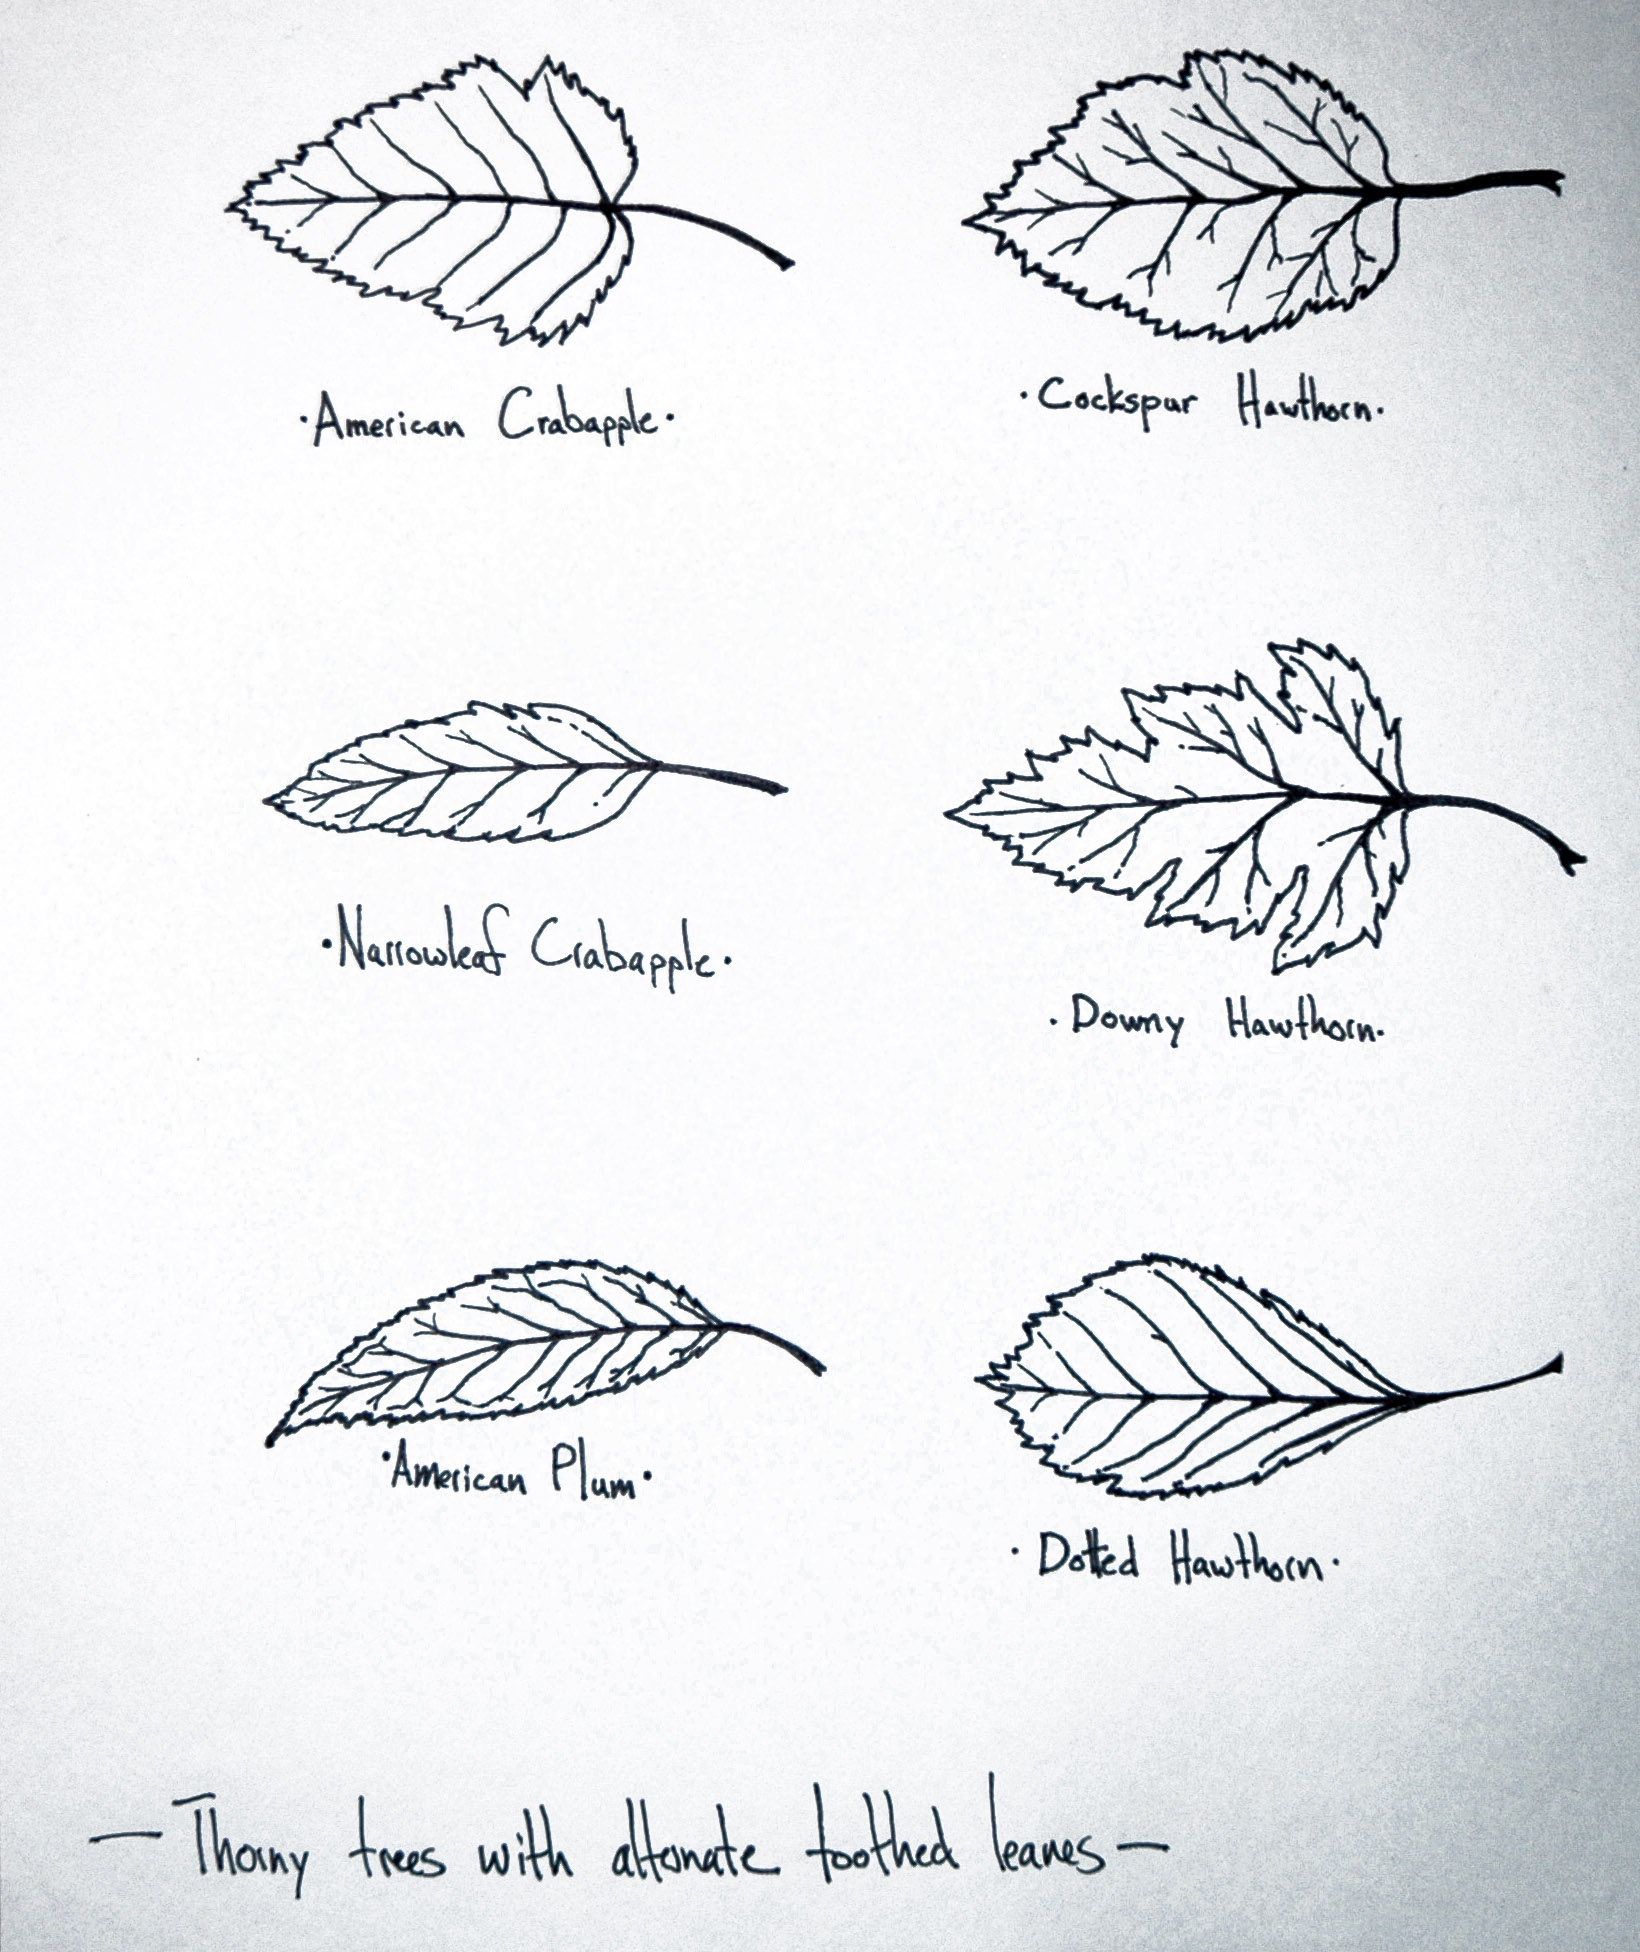 ·American Crabapple·
·Cockspur Hawthorn·
·Narrowleaf Crabapple·
·Downy Hawthorn·
·American Plum·
·Dotted Hawthorn·
—Thorny trees with alternate toothed leaves—